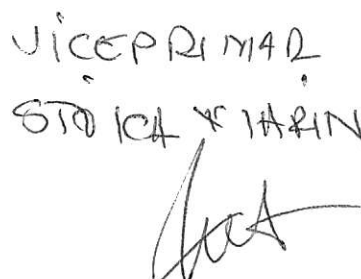 VICEPRIMAR
STOICA MARIN